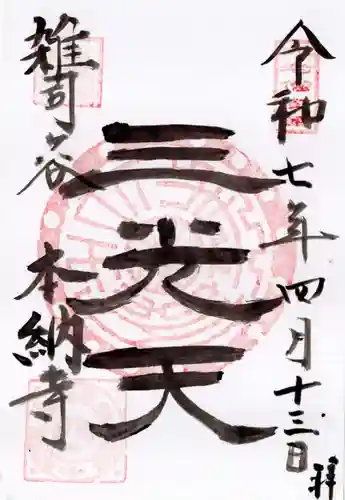 令和七年四月十三日 拝
三光天
雑司谷 本納寺